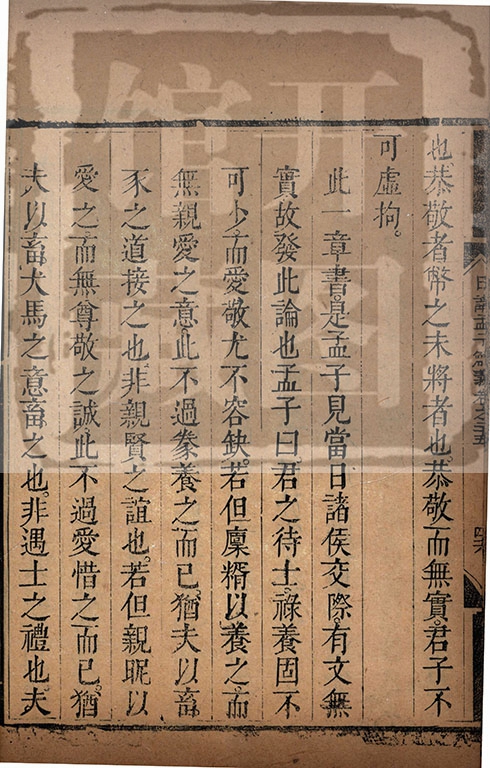 也恭敬者幣之未將者也恭敬而無實君子不
可虛拘。
此一章書是孟子見當日諸侯交際有文無
實故發此論也孟子曰君之待士祿養固不
可少而愛敬尤不容缺若但廩糈以養之而
無親愛之意此不過豢養之而已猶夫以畜
豕之道接之也非親賢之誼也若但親昵以
愛之而無尊敬之誠此不過愛惜之而已猶
夫以畜犬馬之意畜之也非遇士之禮也夫
日講孟子